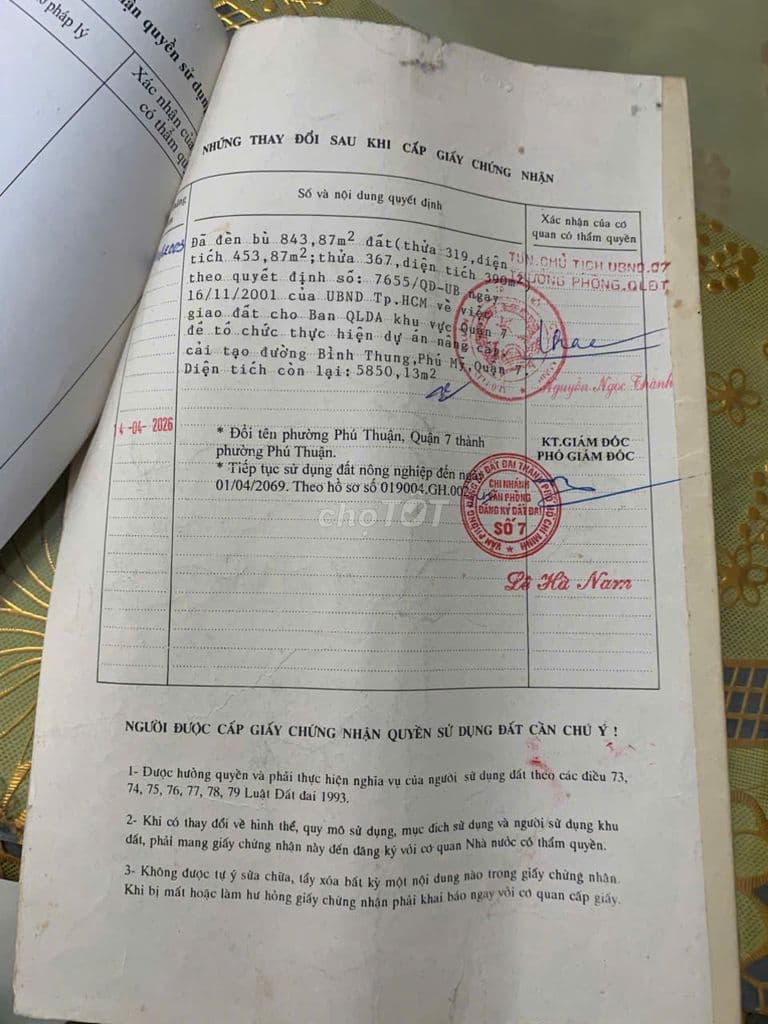 pháp lý
quyền sử dụng
Xác nhận của
có thẩm qu
NHỮNG THAY ĐỔI SAU KHI CẤP GIẤY CHỨNG NHẬN
Số và nội dung quyết định
Xác nhận của cơ
quan có thẩm quyền
Đã đèn bù 843,87m2 đất(thửa 319,diện
tích 453,87m2;thửa 367,diện tích 390m2)
theo quyết định số: 7655/QĐ-UB ngày
16/11/2001 của UBND Tp.HCM về việc
giao đất cho Ban QLDA khu vực Quận 7
để tổ chức thực hiện dự án nâng cấp,
cải tạo đường Bình Thung,Phú Mỹ,Quận 7.
Diện tích còn lại:5850,13m2
TUN.CHỦ TỊCH UBND.Q7
TRƯỞNG PHÒNG.QLĐT
Nguyễn Ngọc Thành
14-04-2026
* Đổi tên phường Phú Thuận, Quận 7 thành
phường Phú Thuận.
* Tiếp tục sử dụng đất nông nghiệp đến ngày
01/04/2069. Theo hồ sơ số 019004.GH.002
KT.GIÁM ĐỐC
PHÓ GIÁM ĐỐC
VĂN PHÒNG ĐĂNG KÝ ĐẤT ĐAI THÀNH PHỐ HỒ CHÍ MINH
CHI NHÁNH
VĂN PHÒNG
ĐĂNG KÝ ĐẤT ĐAI
SỐ 7
Lê Hà Nam
chợTỐT
NGƯỜI ĐƯỢC CẤP GIẤY CHỨNG NHẬN QUYỀN SỬ DỤNG ĐẤT CẦN CHÚ Ý !
1- Được hưởng quyền và phải thực hiện nghĩa vụ của người sử dụng đất theo các điều 73,
74, 75, 76, 77, 78, 79 Luật Đất đai 1993.
2- Khi có thay đổi về hình thể, quy mô sử dụng, mục đích sử dụng và người sử dụng khu
đất, phải mang giấy chứng nhận này đến đăng ký với cơ quan Nhà nước có thẩm quyền.
3- Không được tự ý sửa chữa, tẩy xóa bất kỳ một nội dung nào trong giấy chứng nhận.
Khi bị mất hoặc làm hư hỏng giấy chứng nhận phải khai báo ngay với cơ quan cấp giấy.